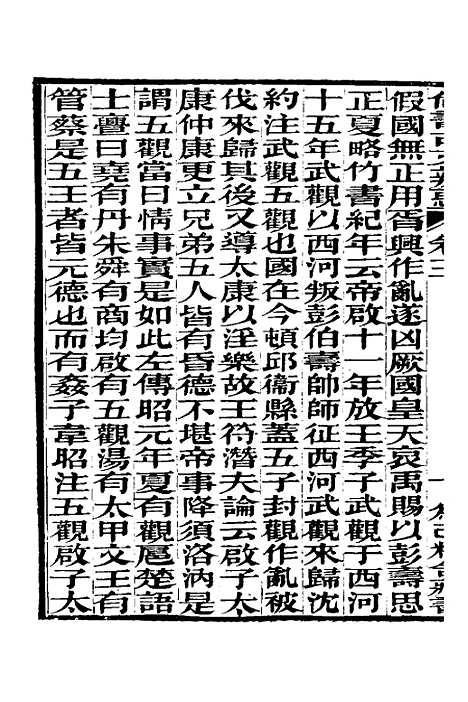 假國無正用胥興作亂遂凶厥國皇天哀禹賜以彭壽思
正夏略竹書紀年云帝啟十一年放王季子武觀于西河
十五年武觀以西河叛彭伯壽帥師征西河武觀來歸沈
約注武觀五觀也國在今頓邱衞縣蓋五子封觀作亂被
伐來歸其後又導太康以淫樂故王符潛夫論云啟子太
康仲康更立兄弟五人皆有昏德不堪帝事降須洛汭是
謂五觀當日情事實是如此左傳昭元年夏有觀扈楚語
士亹曰堯有丹朱舜有商均啟有五觀湯有太甲文王有
管蔡是五王者皆元德也而有姦子韋昭注五觀啟子太